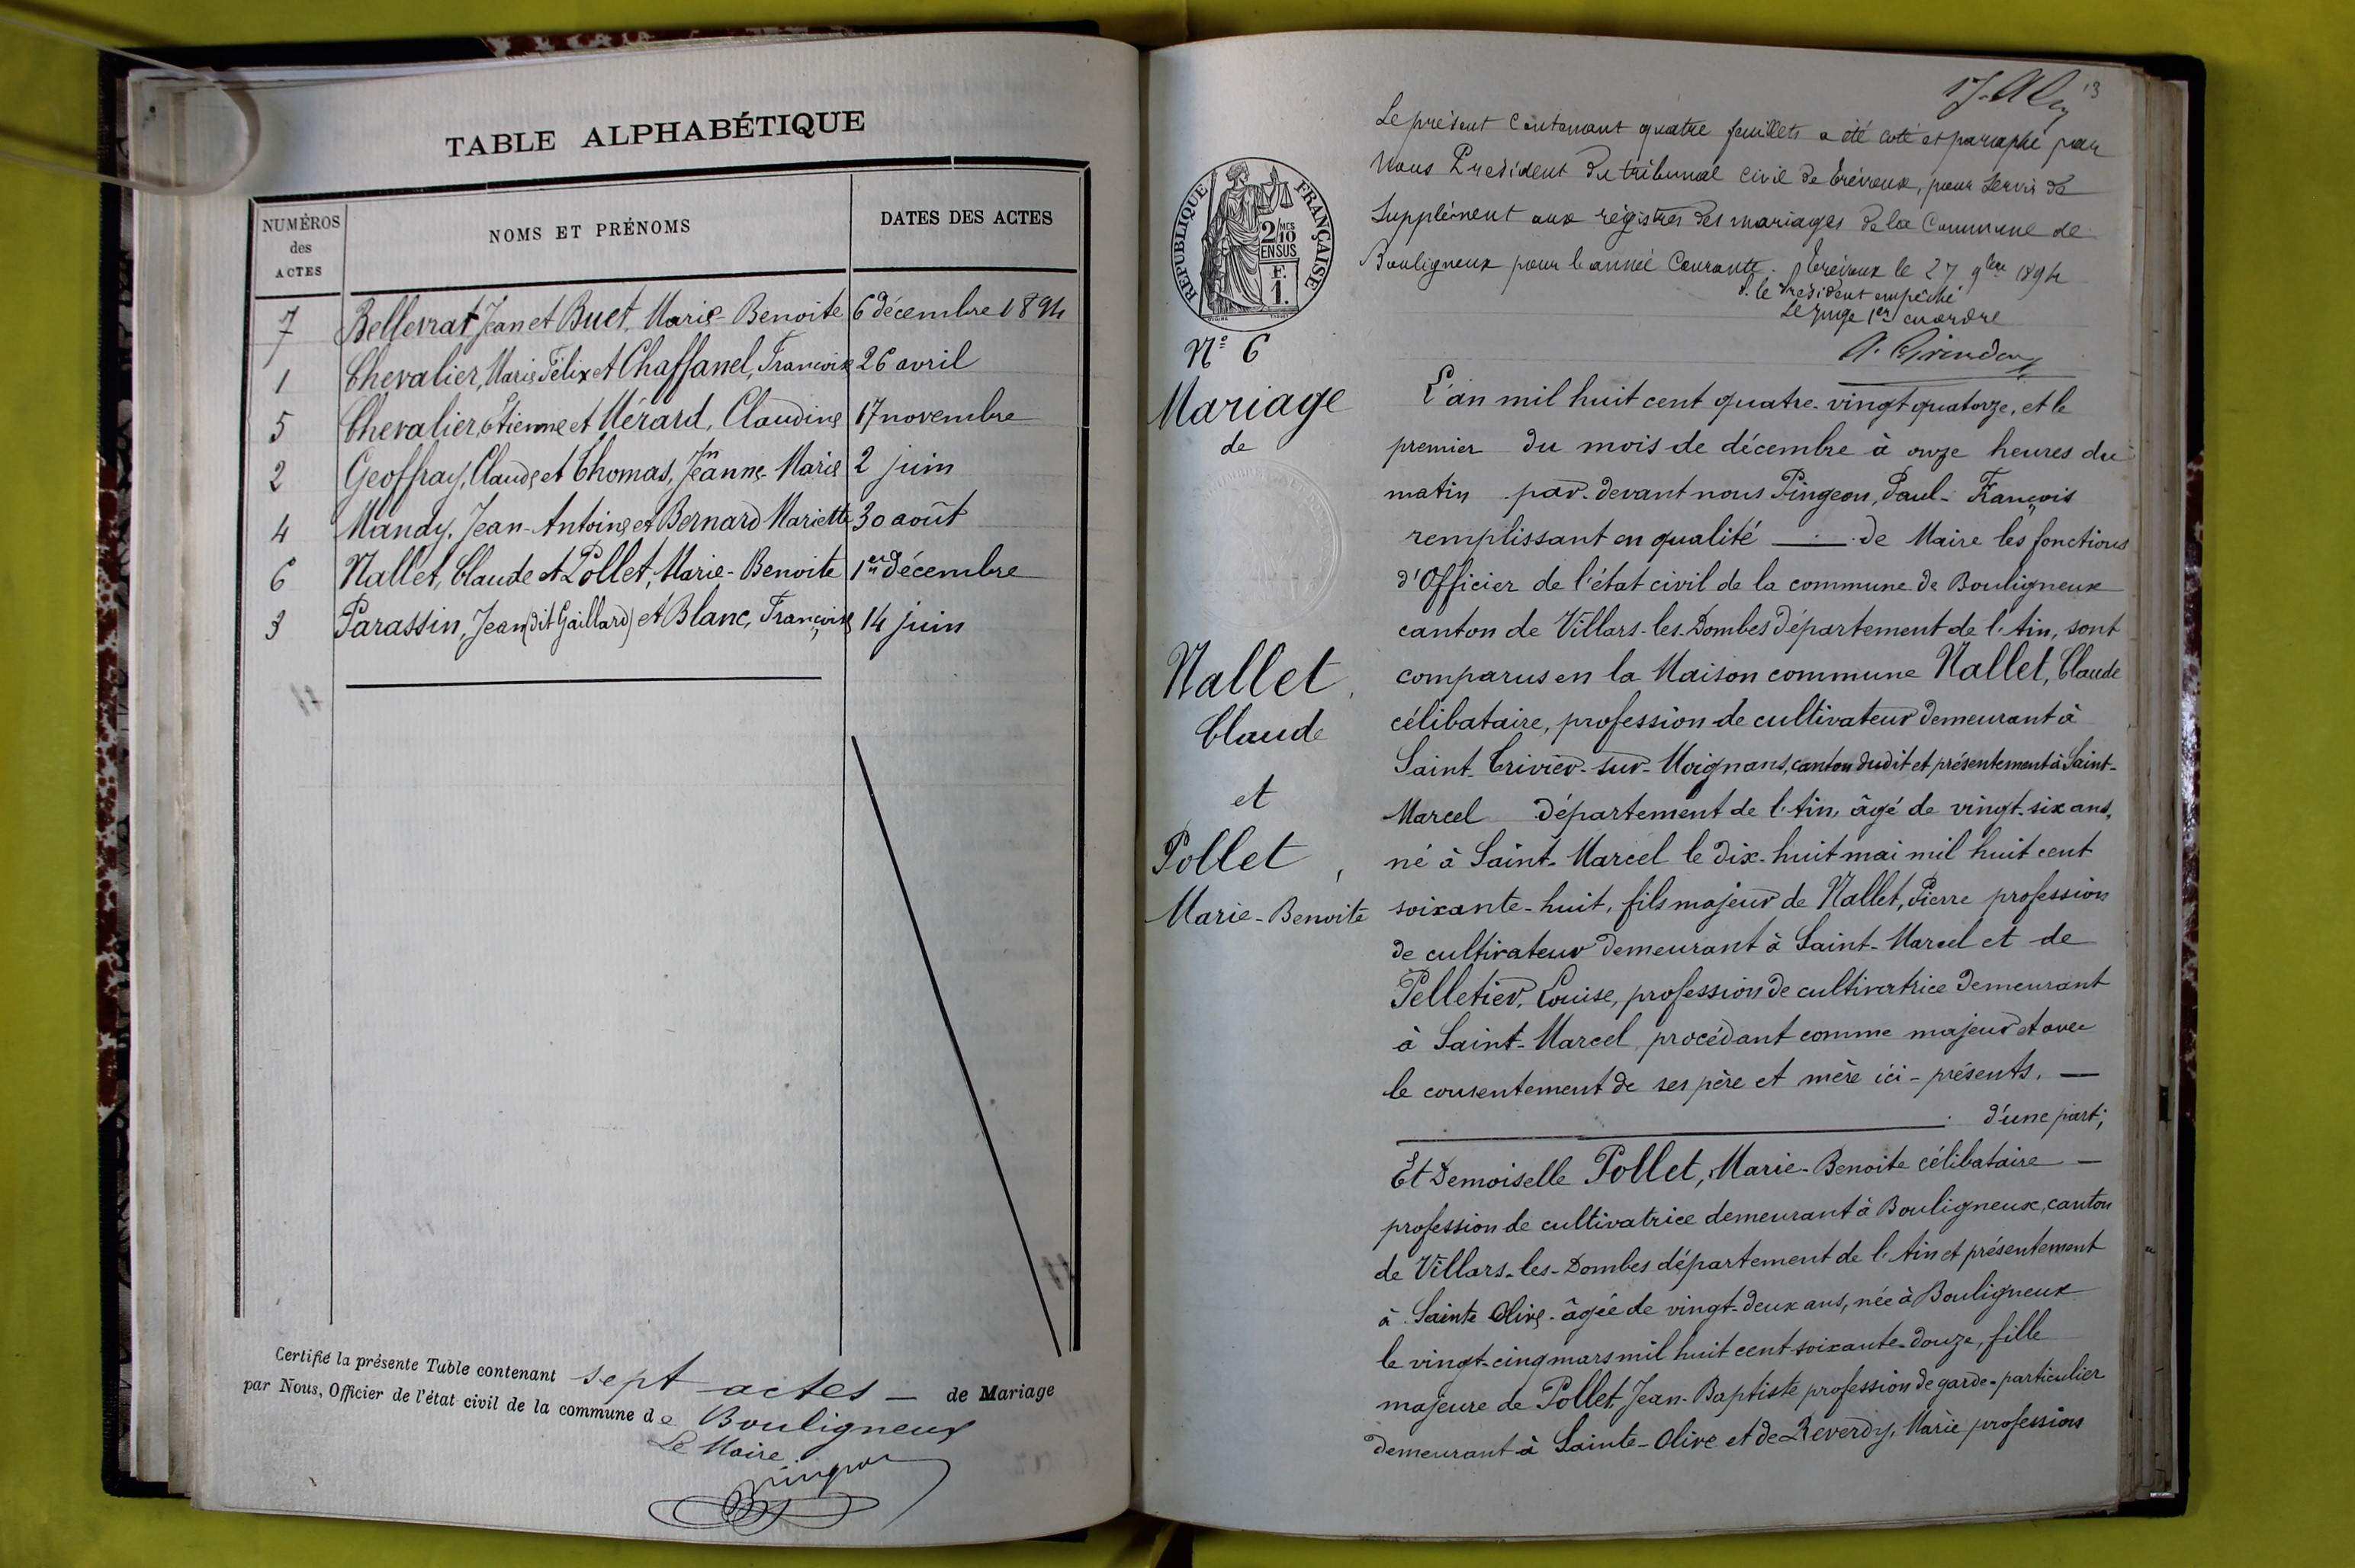 TABLE ALPHABÉTIQUE
NUMÉROS
des
ACTES
NOMS ET PRÉNOMS
DATES DES ACTES
7 Bellevrat Jean et Buet, Marie-Benoite 6 décembre 1894
1 Chevalier, Marie Félix et Chaffanel, Françoise 26 avril
5 Chevalier, Étienne et Mérard, Claudine 17 novembre
2 Geoffray, Claude et Thomas, Jeanne-Marie 2 juin
4 Mandy, Jean-Antoine et Bernard Mariette 30 août
6 Nallet, Claude et Pollet, Marie-Benoite 1er décembre
3 Parassin, Jean (dit Gaillard) et Blanc, Françoise 14 juin
Certifié la présente Table contenant sept actes — de Mariage
par Nous, Officier de l'état civil de la commune de Bouligneux
Le Maire
Pingeon
13
Le présent contenant quatre feuillets a été coté et paraphé par
Nous Président du tribunal civil de Trévoux, pour servir de
Supplément aux régistres des mariages de la Commune de
Bouligneux pour l'année Courante. Trévoux le 27 9bre 1894
P. le Président empêché
Le Juge 1er en ordre
RÉPUBLIQUE FRANÇAISE
2/10 MES
EN SUS
F.
1.
N° 6
Mariage
de
Nallet,
Claude
et
Pollet,
Marie-Benoite
L'an mil huit cent quatre-vingt quatorze, et le
premier du mois de décembre à onze heures du
matin par-devant nous Pingeon, Paul-François
remplissant en qualité — de Maire les fonctions
d'Officier de l'état civil de la commune de Bouligneux
canton de Villars-les-Dombes département de l'Ain, sont
comparus en la Maison commune Nallet, Claude
célibataire, profession de cultivateur demeurant à
Saint-Trivier-sur-Moignans, canton dudit et présentement à Saint-
Marcel département de l'Ain, âgé de vingt-six ans,
né à Saint-Marcel le dix-huit mai mil huit cent
soixante-huit, fils majeur de Nallet, Pierre profession
de cultivateur demeurant à Saint-Marcel et de
Pelletier, Louise, profession de cultivatrice demeurant
à Saint-Marcel, procédant comme majeur et avec
le consentement de ses père et mère ici-présents. —
d'une part;
Et Demoiselle Pollet, Marie-Benoite célibataire —
profession de cultivatrice demeurant à Bouligneux, canton
de Villars-les-Dombes département de l'Ain et présentement
à Sainte Olive - âgée de vingt-deux ans, née à Bouligneux
le vingt-cinq mars mil huit cent soixante-douze, fille
majeure de Pollet Jean-Baptiste profession de garde-particulier
demeurant à Sainte-Olive et de Reverdy, Marie profession